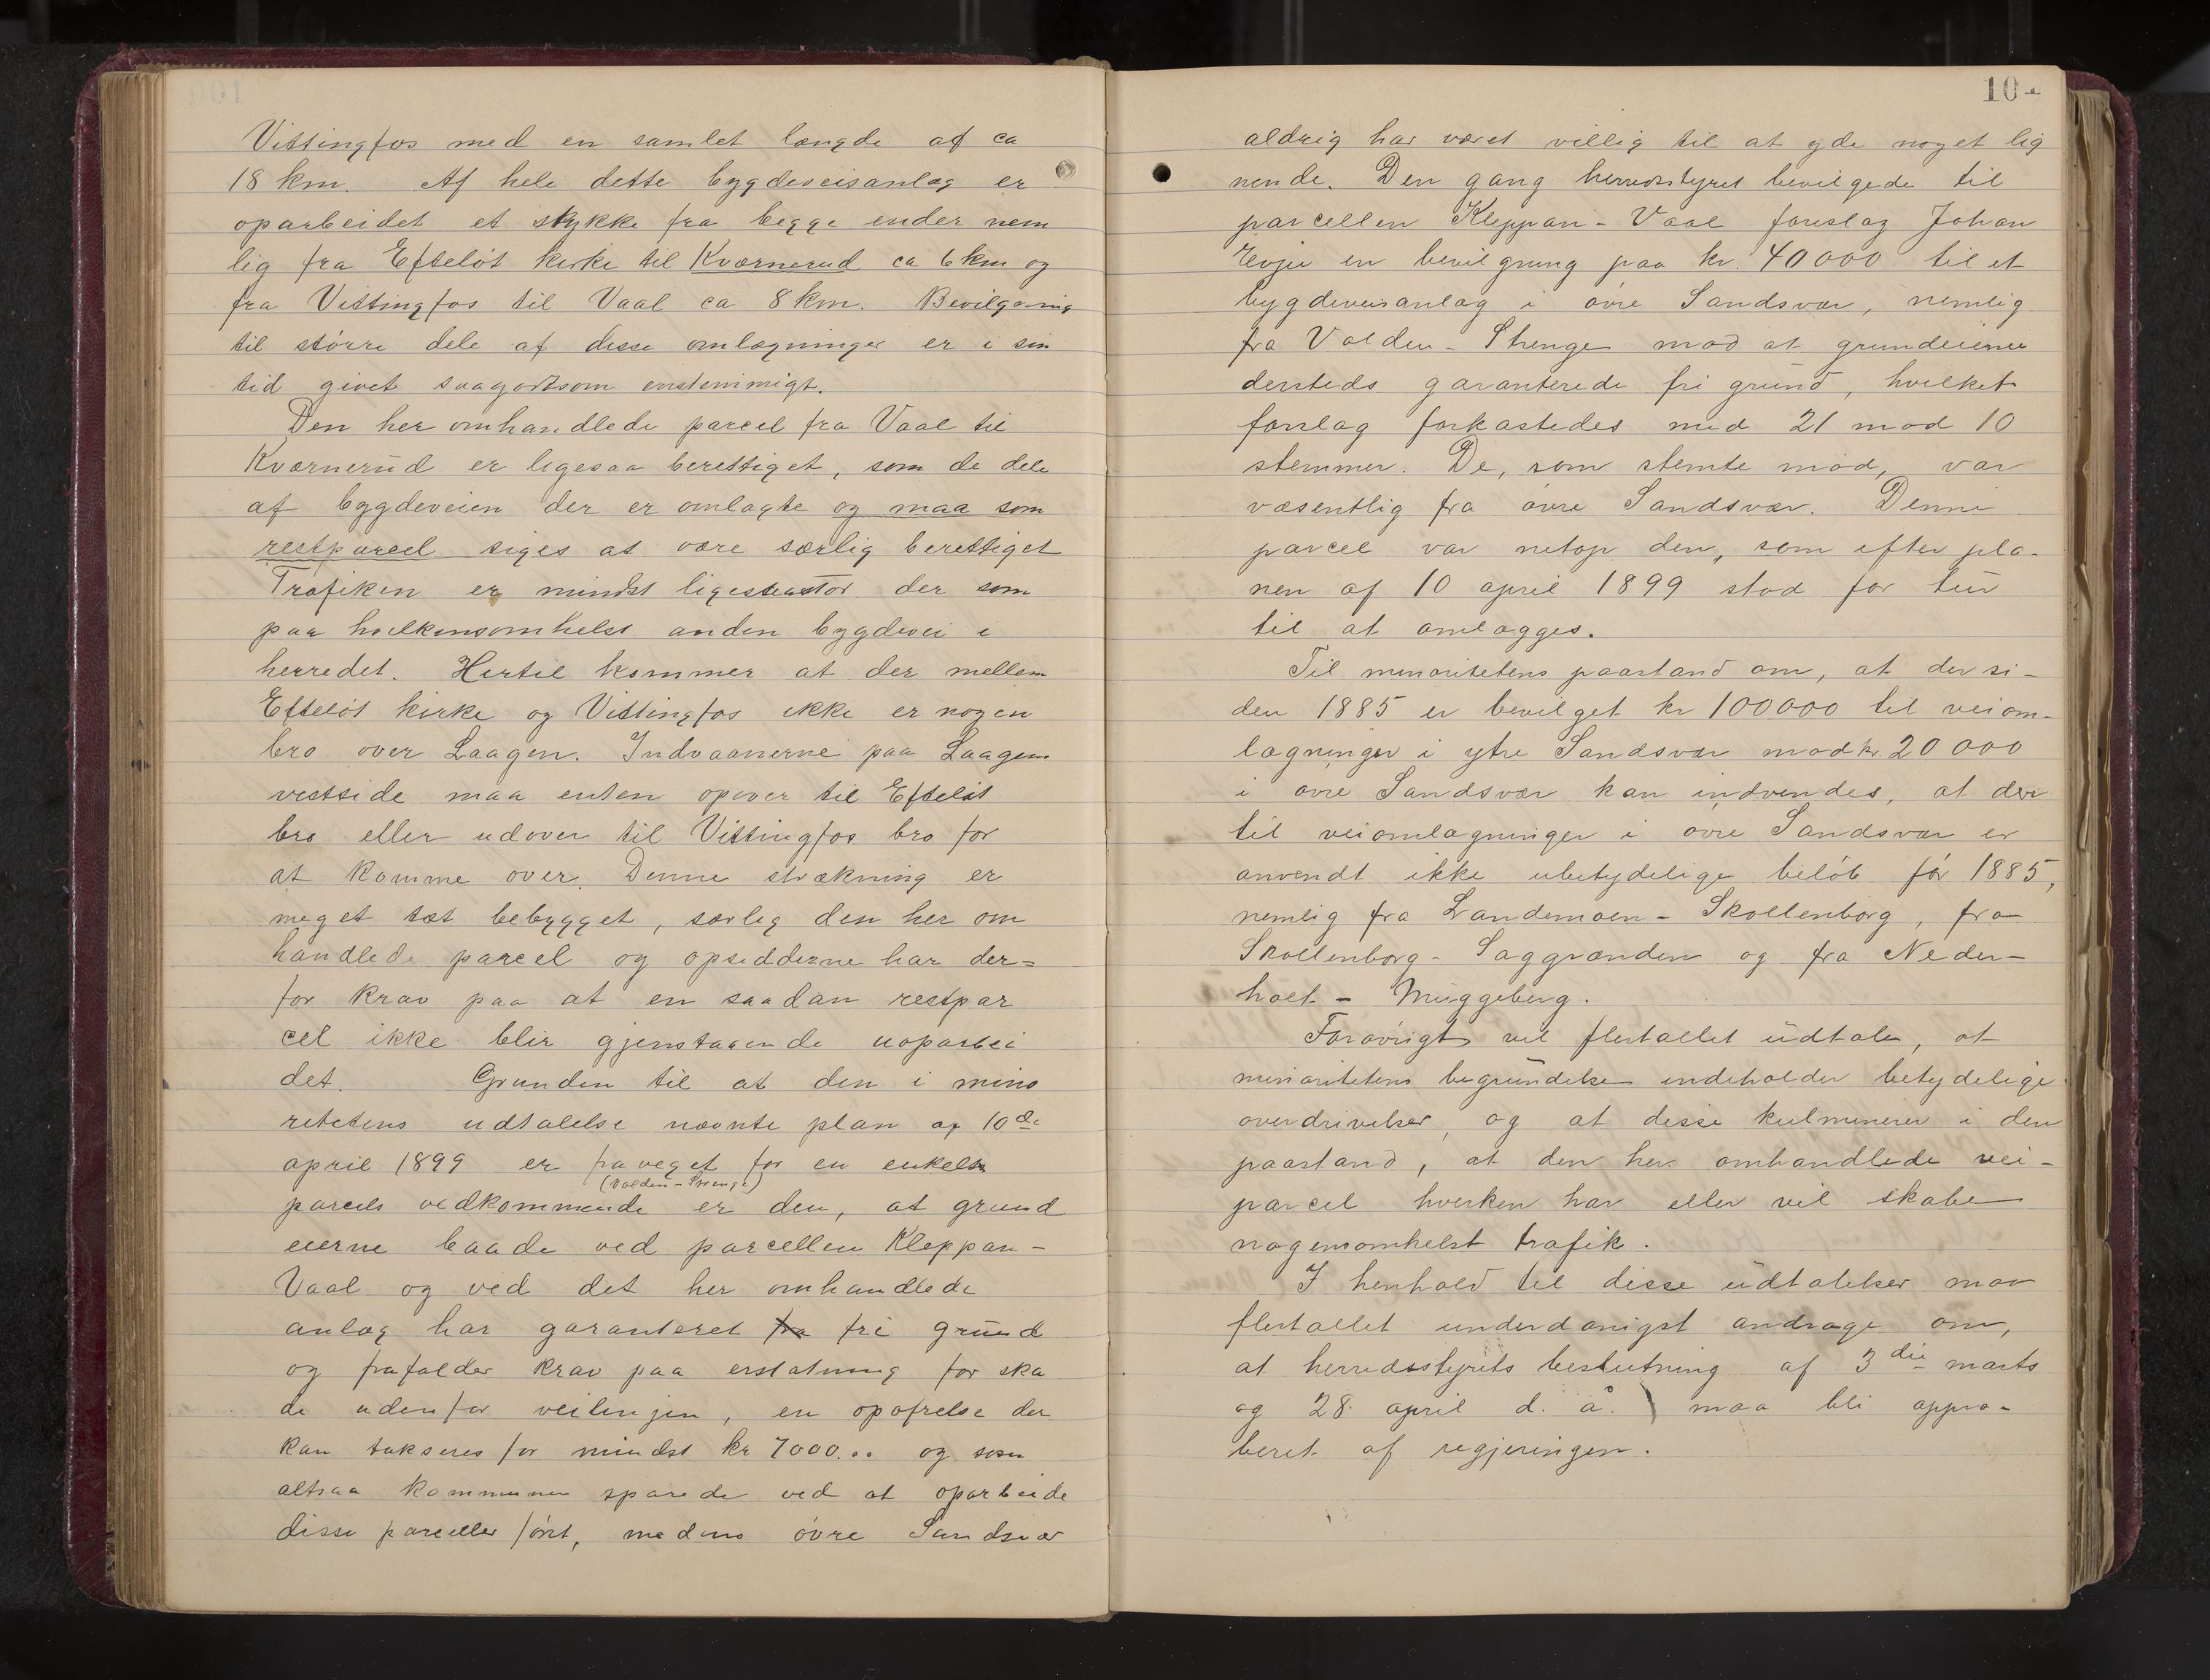 Vittingfos med en samlet længde af ca
18 km. Af hele dette bygdeveisanlæg er
oparbeidet et stykke fra begge ender nem
lig fra Efteløt kirke til Kværnerud ca 6 km og
fra Vittingfos til Vaal ca 8 km. Bevilgning
til større dele af disse omlægninger er i sin
tid givet saagodtsom enstemmigt.
Den her omhandlede parcel fra Vaal til
Kværnerud er ligesaa berettiget, som de dele
af bygdeveien der er omlagte og maa som
restparcel siges at være særlig berettiget
Trafiken er mindst ligesaastor der som
paa hvilkensomhelst anden bygdevei i
herredet. Hertil kommer at der mellem
Efteløt kirke og Vittingfos ikke er nogen
bro over Laagen. Indvaanerne paa Laagens
vestside maa enten opover til Efteløt
bro eller udover til Vittingfos bro for
at komme over. Denne strækning er
meget tæt bebygget, særlig den her om
handlede parcel og opsidderne har der=
for krav paa at en saadan restpar
cel ikke blir gjenstaaende uoparbei
det. Grunden til at den i mino
ritetens udtalelse nævnte plan af 10de
april 1899 er fraveget for en enkelt
(Volden - Strenge)
parcels vedkommende er den, at grund
eierne baade ved parcellen Kleppan-
Vaal og ved det her omhandlede
anlæg har garanteret fra fri grund
og frafalder krav paa erstatning for ska
de udenfor veilinjen, en opofrelse der
kan takseres for mindst kr 7000.00 og som
altsaa kommunen sparede ved at oparbeide
disse parceller først, medens øvre Sandsvær
104
aldrig har været villig til at yde noget lig
nende. Den gang herredsstyret bevilgede til
parcellen Kleppan - Vaal foreslog Johan
Evju en bevilgning paa kr. 40000 til et
bygdeveisanlæg i øvre Sandsvær, nemlig
fra Volden - Strenge mod at grundeierne
dersteds garanterede fri grund, hvilket
forslag forkastedes med 21 mod 10
stemmer. De, som stemte mod, var
væsentlig fra øvre Sandsvær. Denne
parcel var netop den, som efter pla-
nen af 10 april 1899 stod for tur
til at omlægges.
Til minoritetens paastand om, at der si-
den 1885 er bevilget kr 100000 til veiom-
lægninger i ytre Sandsvær mod kr. 20000
i øvre Sandsvær kan indvendes, at der
til veiomlægninger i øvre Sandsvær er
anvendt ikke ubetydelige beløb før 1885,
nemlig fra Landemoen - Skollenborg, fra
Skollenborg - Saggrænden og fra Neder-
hoet - Muggeberg.
Forøvrigt vil flertallet udtale, at
minoritetens begrundelse indeholder betydelige
overdrivelser, og at disse kulminerer i den
paastand, at den her omhandlede vei-
parcel hverken har eller vil skabe
nogensomhelst trafik.
I henhold til disse udtalelser maa
flertallet underdanigst andrage om,
at herredsstyrets beslutning af 3die marts
og 28. april d. å. maa bli appro-
beret af regjeringen.